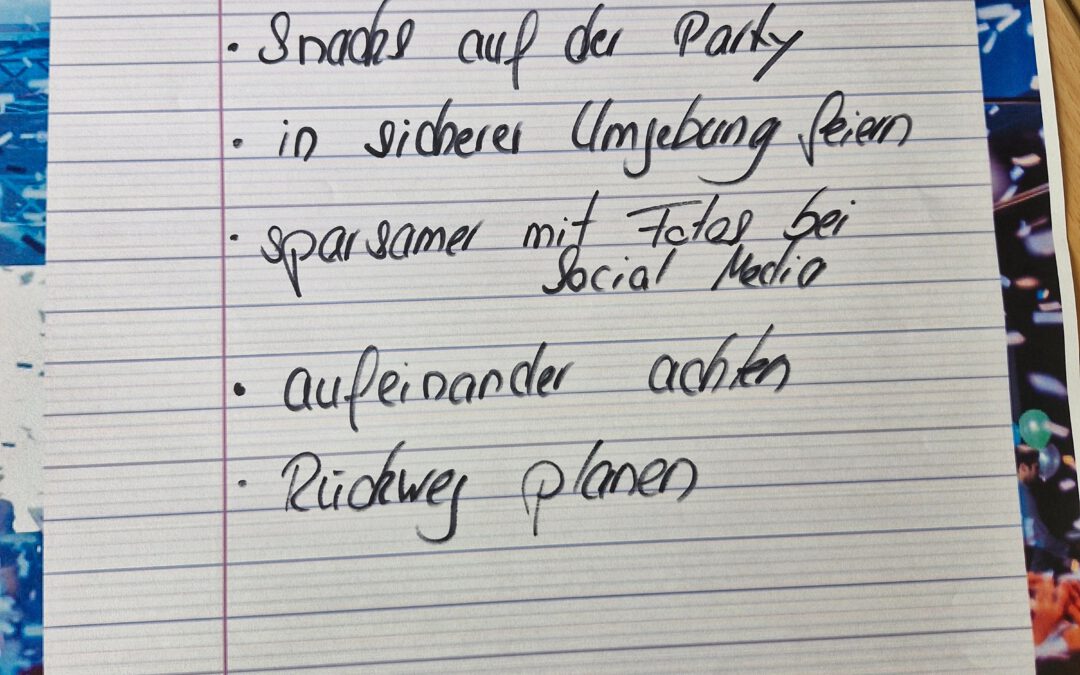 · Snacks auf der Party
· in sicherer Umgebung feiern
· sparsamer mit Fotos bei
Social Media
· aufeinander achten
· Rückweg planen